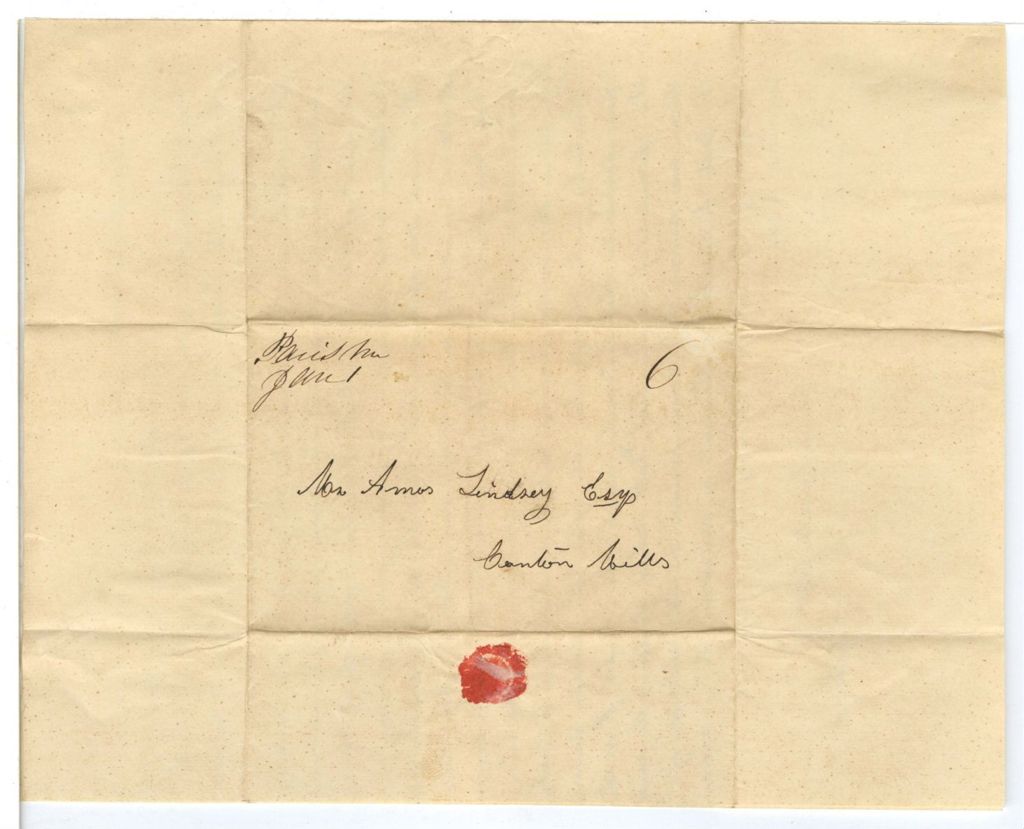 Paris Me
June 1
6
Mr Amos Lindsey Esq
Canton Mills